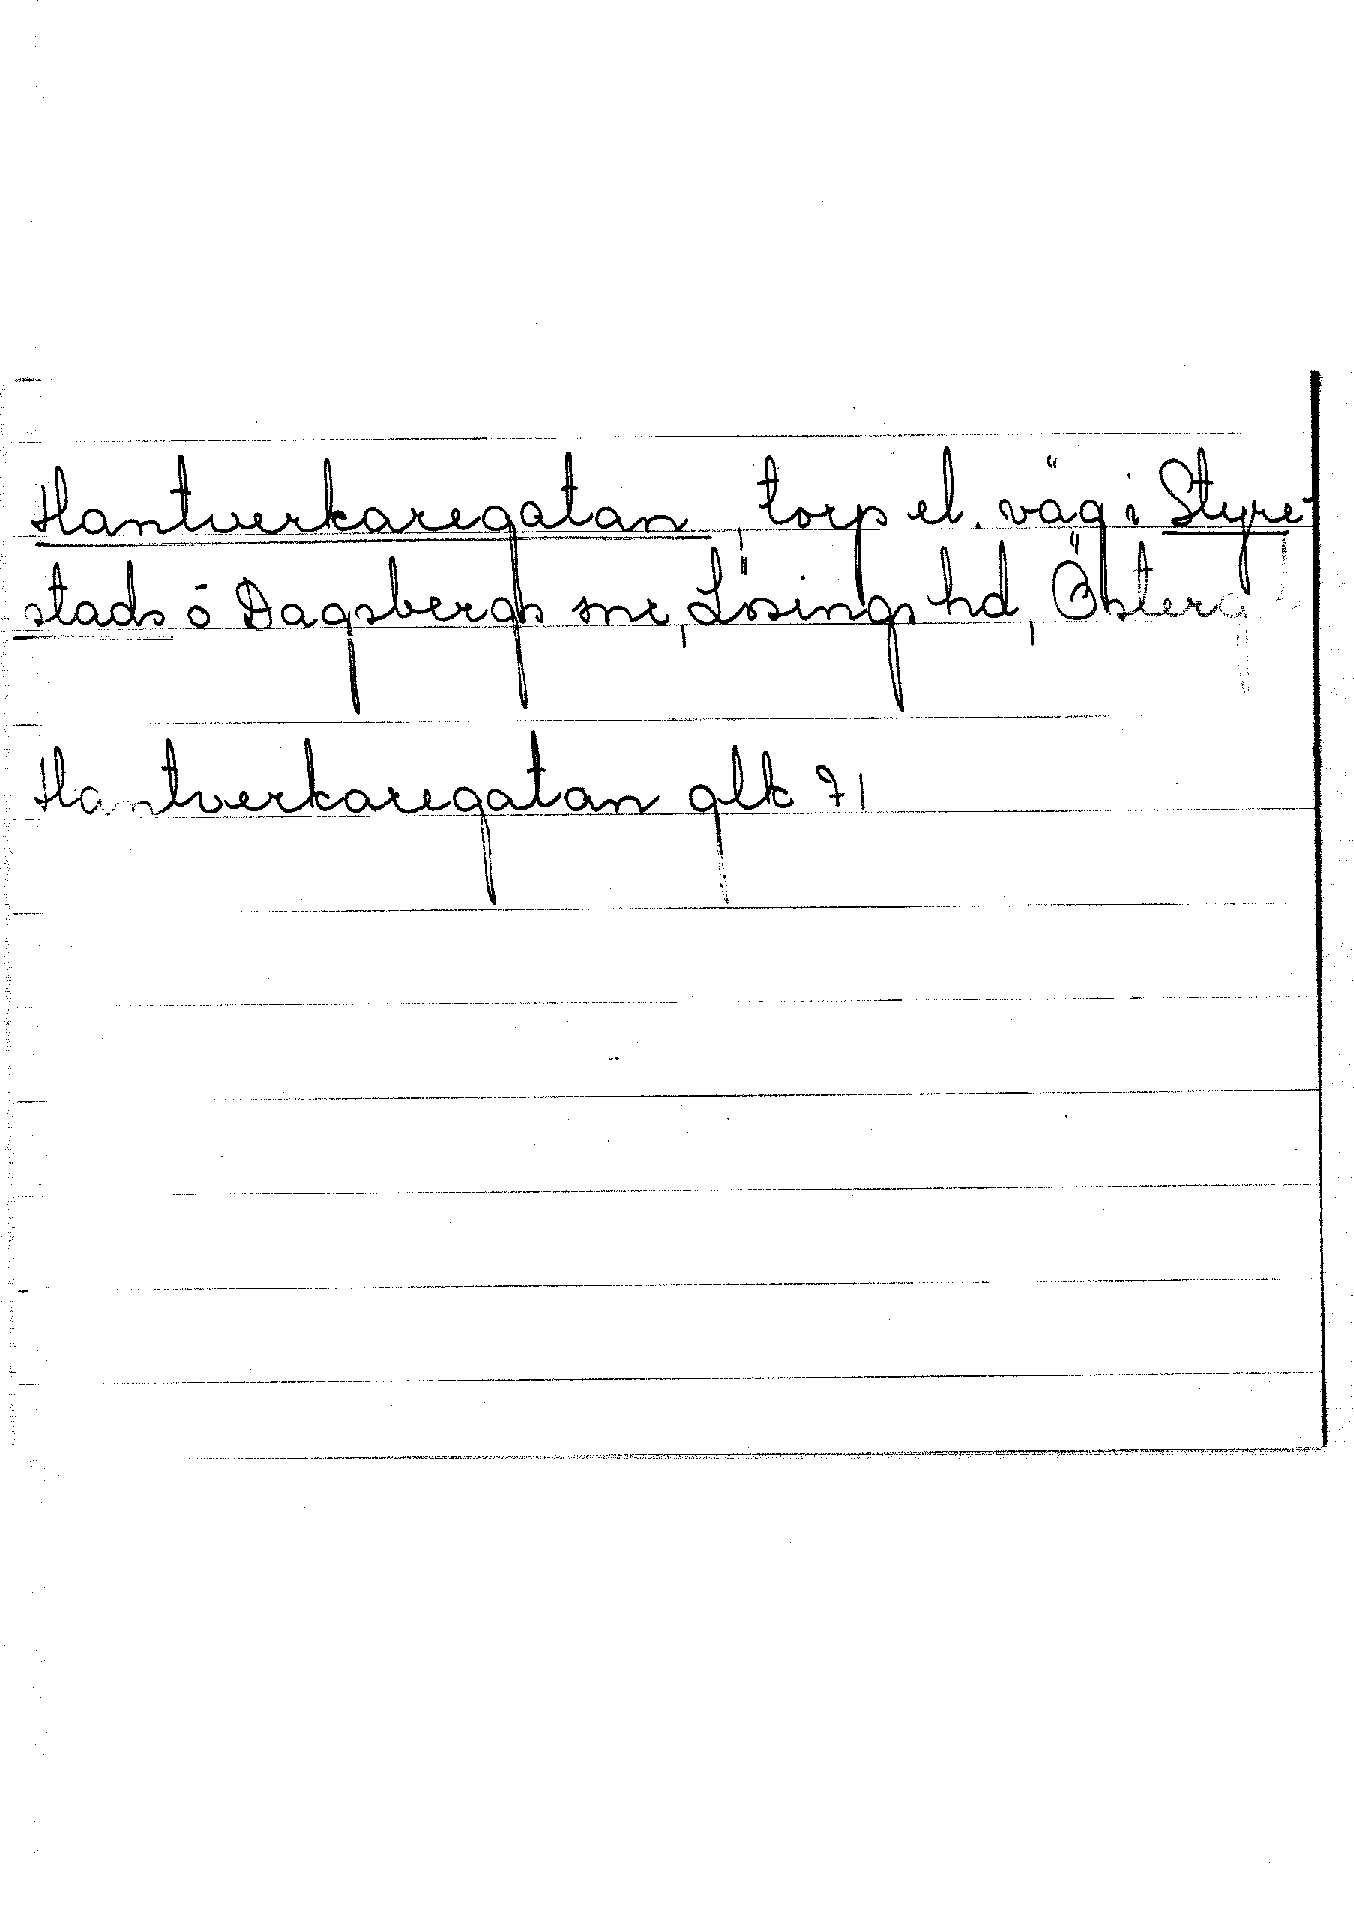 Hantverkaregatan, torp el. väg i Styre-
stads o Dagsbergs snr, Lösings hd, Östergl
Hantverkaregatan glk 71